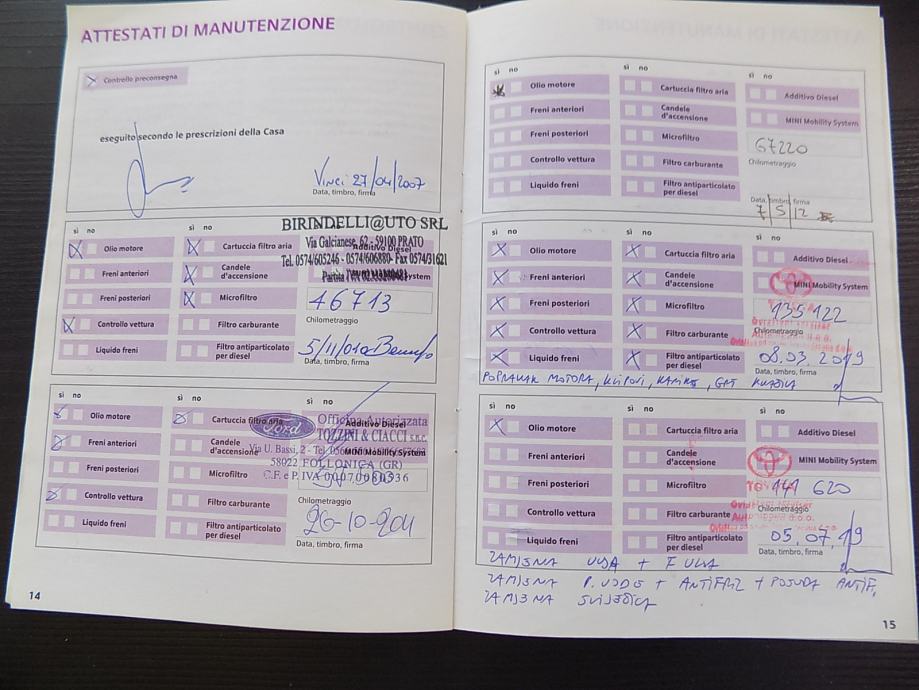 ATTESTATI DI MANUTENZIONE
Controllo preconsegna
eseguito secondo le prescrizioni della Casa
Vinci 27/04/2007
Data, timbro, firma
sì no
sì no
BIRINDELLI@UTO SRL
Via Galcianese, 62 - 59100 PRATO
Tel. 0574/605246 - 0574/606880- Fax 0574/31621
Olio motore
Cartuccia filtro aria
Additivo Diesel
Freni anteriori
Candele d'accensione
Freni posteriori
Microfiltro
46713
Chilometraggio
Controllo vettura
Filtro carburante
Liquido freni
Filtro antiparticolato per diesel
5/11/010
Data, timbro, firma
sì no
sì no
sì no
Olio motore
Cartuccia filtro aria
Additivo Diesel
Ford
Officina Autorizzata
TOZZINI & CIACCI s.n.c.
Freni anteriori
Candele d'accensione
MINI Mobility System
Via U. Bassi, 2 - Tel.
58022 FOLLONICA (GR)
C.F. e P. IVA
Freni posteriori
Microfiltro
Chilometraggio
Controllo vettura
Filtro carburante
26-10-2011
Liquido freni
Filtro antiparticolato per diesel
Data, timbro, firma
14
sì no
sì no
sì no
Olio motore
Cartuccia filtro aria
Additivo Diesel
Freni anteriori
Candele d'accensione
MINI Mobility System
Freni posteriori
Microfiltro
67220
Chilometraggio
Controllo vettura
Filtro carburante
Liquido freni
Filtro antiparticolato per diesel
Data, timbro, firma
7/5/12
sì no
sì no
sì no
Olio motore
Cartuccia filtro aria
Additivo Diesel
Freni anteriori
Candele d'accensione
MINI Mobility System
Freni posteriori
Microfiltro
135122
Chilometraggio
Controllo vettura
Filtro carburante
Liquido freni
Filtro antiparticolato per diesel
08.03.2019
Data, timbro, firma
POPRAVAK MOTORA, KLIPOVI, KARIKE,
sì no
sì no
sì no
Olio motore
Cartuccia filtro aria
Additivo Diesel
Freni anteriori
Candele d'accensione
MINI Mobility System
Freni posteriori
Microfiltro
141 620
Chilometraggio
Controllo vettura
Filtro carburante
Liquido freni
Filtro antiparticolato per diesel
05.07.19
Data, timbro, firma
ZAMJENA ULJA + F ULJA
ZAMJENA P. VODE + ANTIFRIZ + POSUDA ANTIF.
ZAMJENA SVIJEĆICA
15